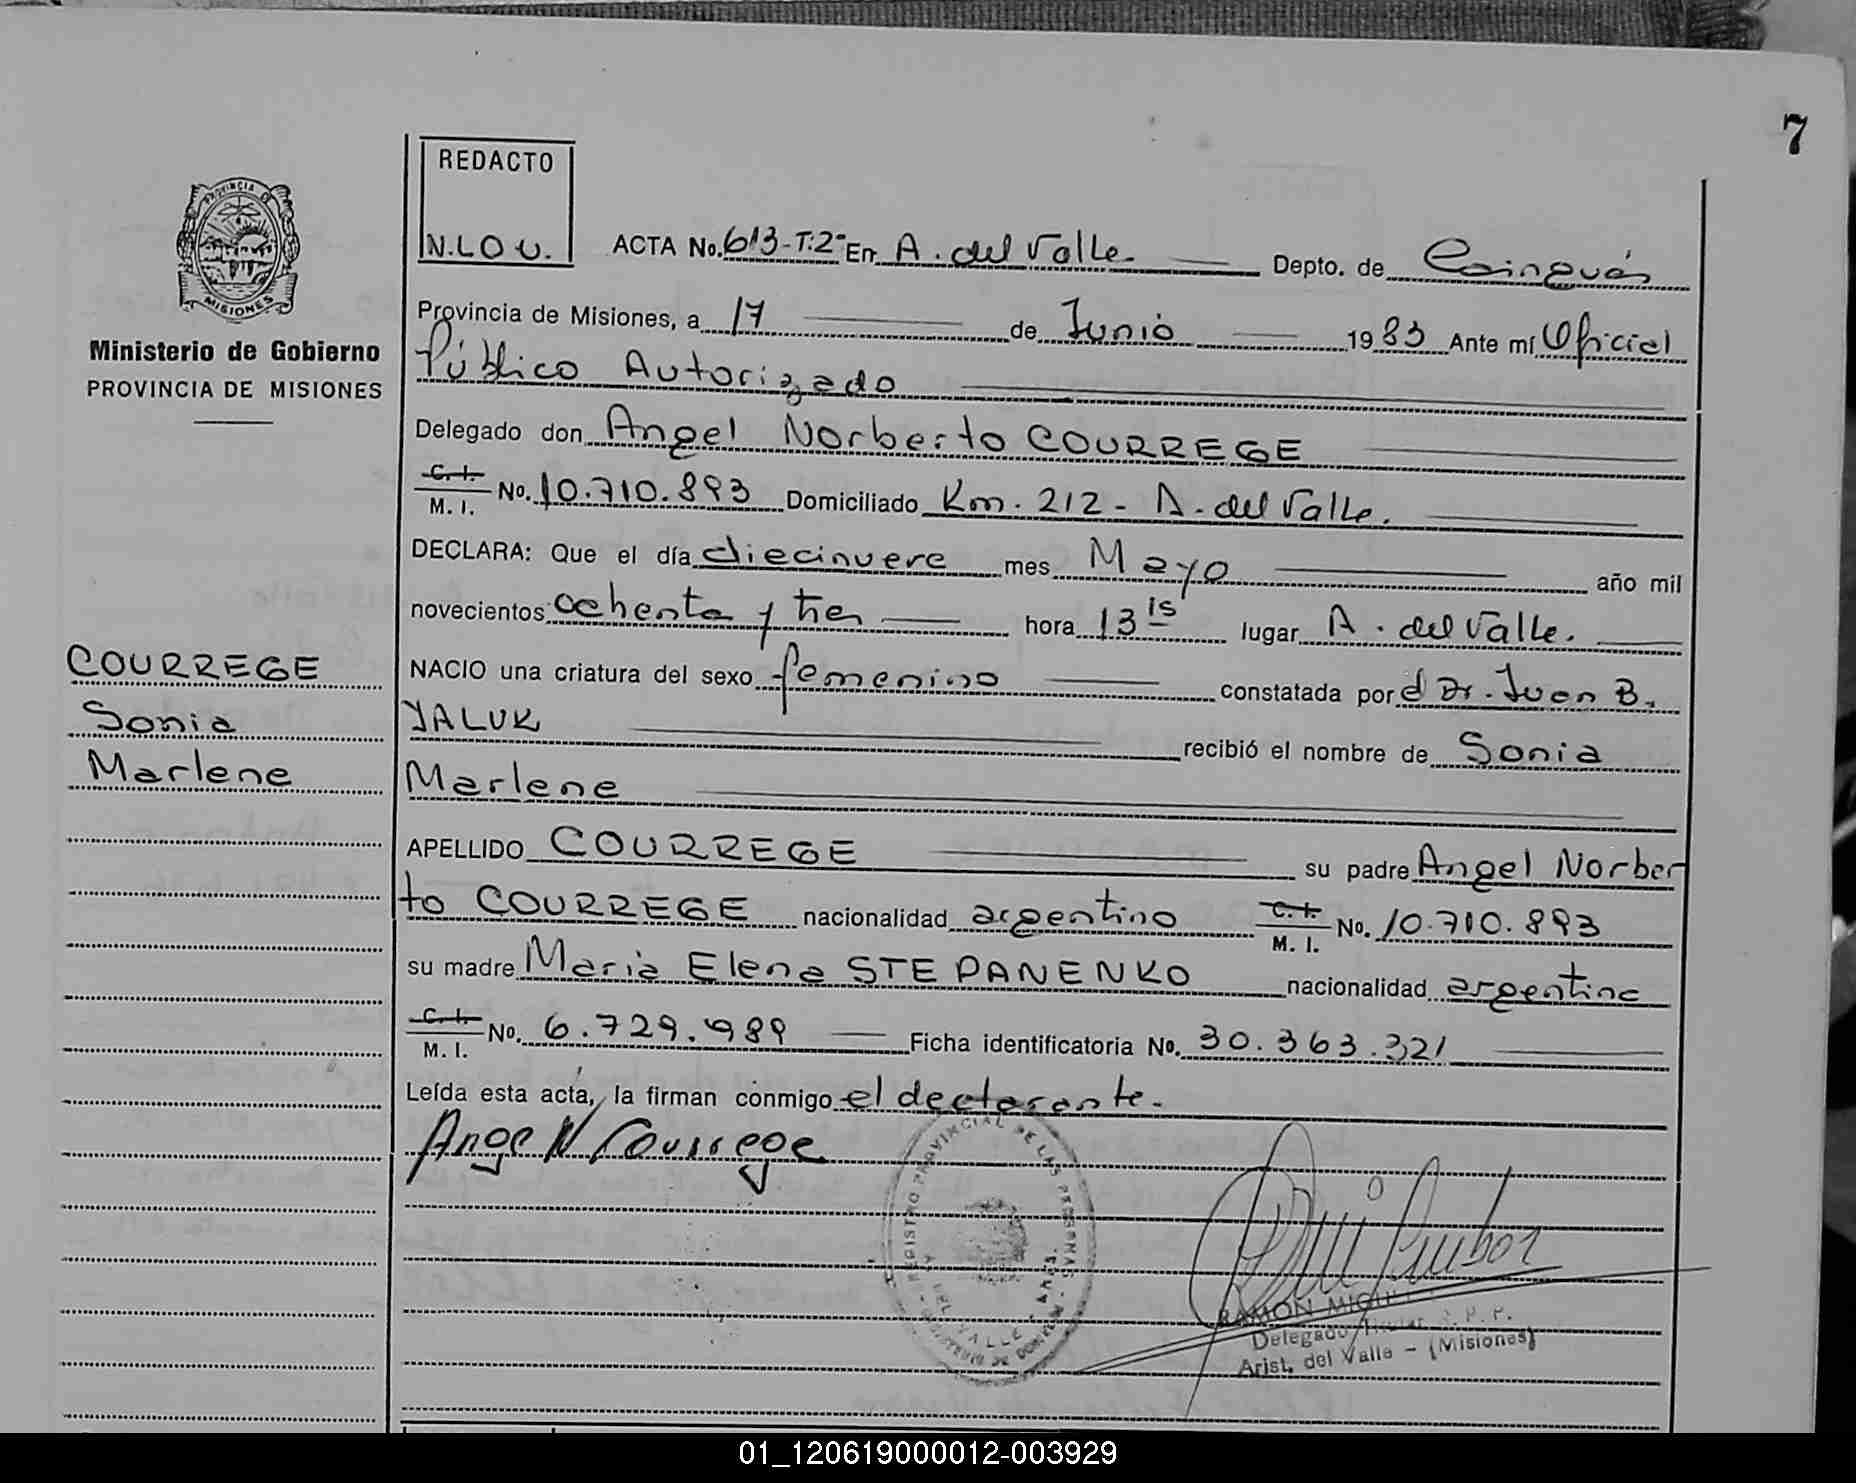 7
REDACTO
N.LOU.
PROVINCIA DE
MISIONES
Ministerio de Gobierno
PROVINCIA DE MISIONES
COURREGE
Sonia
Marlene
ACTA No. 613-T:2º En A. del Valle Depto. de Cainguás
Provincia de Misiones, a 17 de Junio 1983 Ante mí Oficial
Público Autorizado
Delegado don Angel Norberto COURREGE
C. I. M. I. No. 10.710.893 Domiciliado Km. 212 - A. del Valle.
DECLARA: Que el día diecinueve mes Mayo año mil
novecientos ochenta y tres hora 13 15 lugar A. del Valle.
NACIO una criatura del sexo femenino constatada por el Dr. Juan B.
YALUK recibió el nombre de Sonia
Marlene
APELLIDO COURREGE su padre Angel Norber
to COURREGE nacionalidad argentino C. I. M. I. No. 10.710.893
su madre Maria Elena STEPANENKO nacionalidad argentina
C. I. M. I. No. 6.729.989 Ficha identificatoria No. 30.363.321
Leída esta acta, la firman conmigo el declarante.
Ange N Courrege
REGISTRO PROVINCIAL DE LAS PERSONAS
DEL VALLE
RAMON MIGUEL
Delegado R. P. P.
Arist. del Valle - (Misiones)
01_120619000012-003929